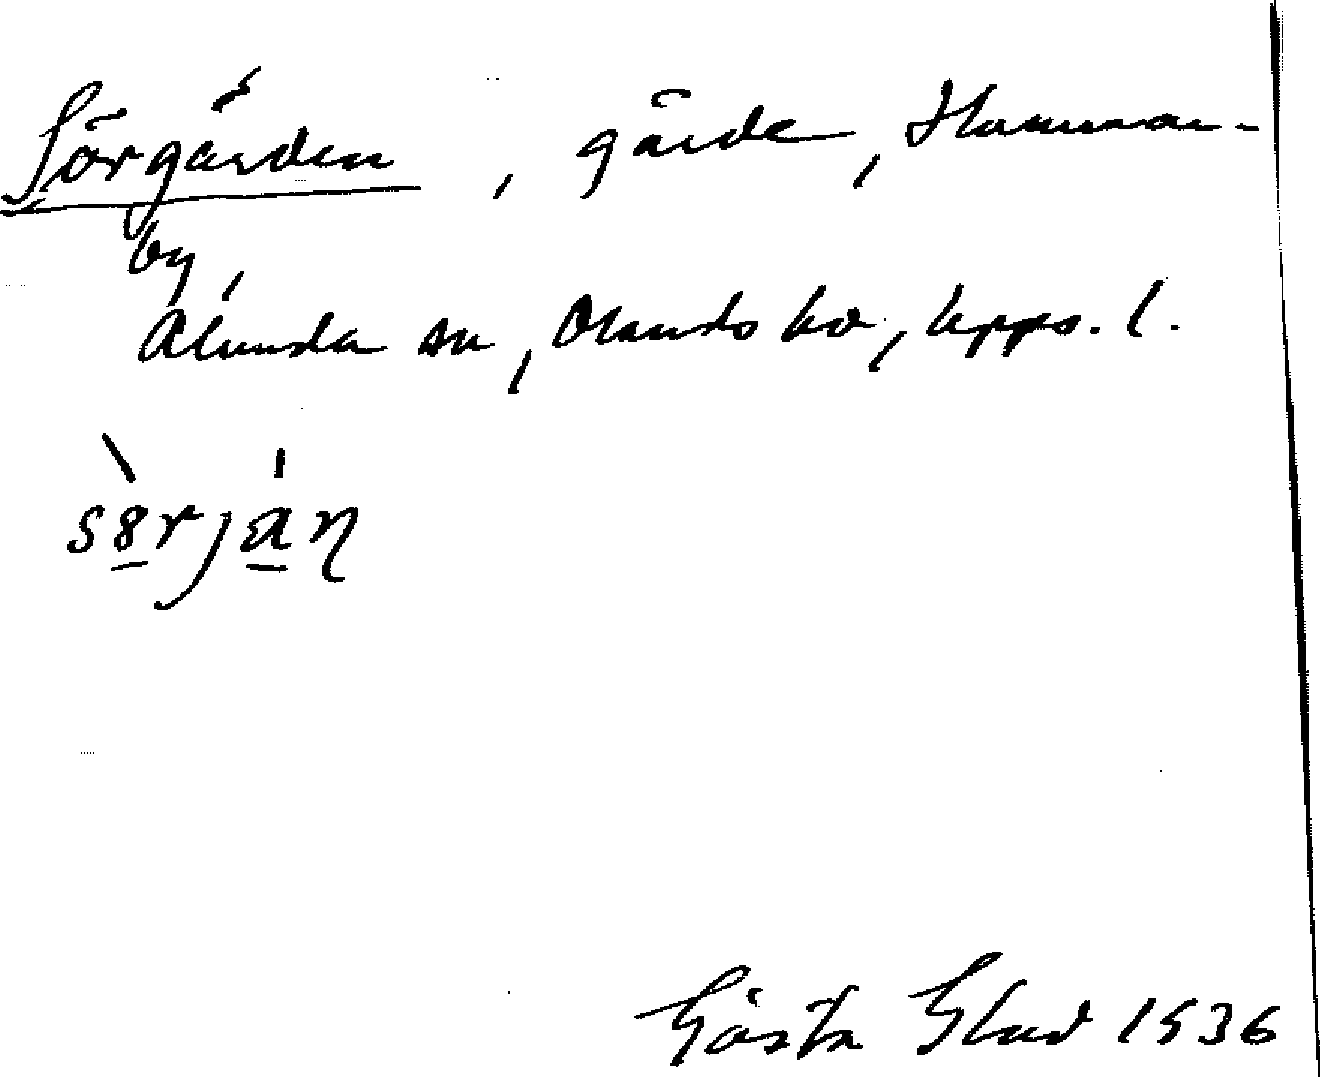 Sörgärden, gärde, Hammar-
by,
Alunda sn, Olands hd, Upps. l.
Gösta Glad 1936